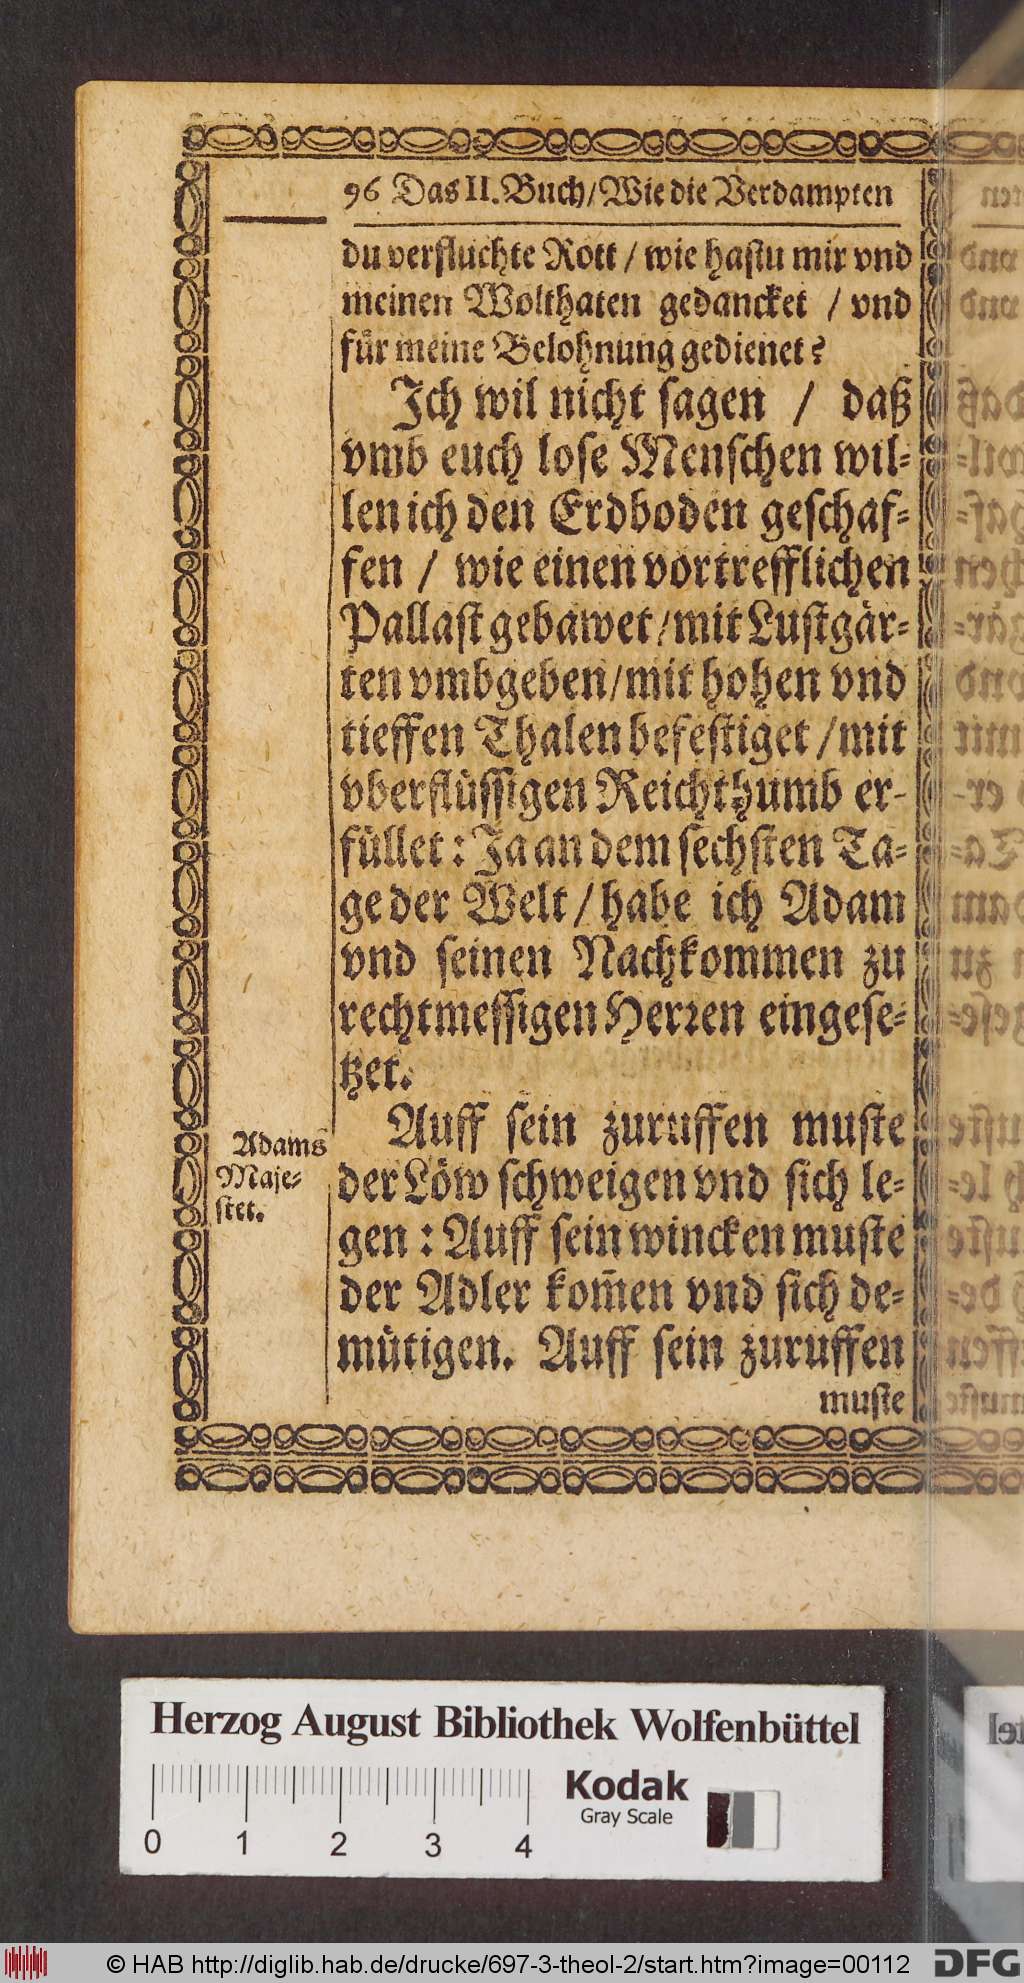 96 Das II. Buch/Wie die Verdampten
du verfluchte Rott / wie hastu mir vnd
meinen Wolthaten gedancket / vnd
für meine Belohnung gedienet?
Ich wil nicht sagen / daß
vmb euch lose Menschen wil-
len ich den Erdboden geschaf-
fen / wie einen vortrefflichen
Pallast gebawet/mit Lustgär-
ten vmbgeben/mit hohen vnd
tieffen Thalen befestiget/mit
vberflüssigen Reichthumb er-
füllet: Ja an dem sechsten Ta-
ge der Welt/habe ich Adam
vnd seinen Nachkommen zu
rechtmessigen Herren eingese-
tzet.
Adams
Maje-
stet.
Auff sein zuruffen muste
der Löw schweigen vnd sich le-
gen: Auff sein wincken muste
der Adler kom̃en vnd sich de-
mütigen. Auff sein zuruffen
muste
Herzog August Bibliothek Wolfenbüttel
Kodak
Gray Scale
0 1 2 3 4
© HAB http://diglib.hab.de/drucke/697-3-theol-2/start.htm?image=00112
DFG